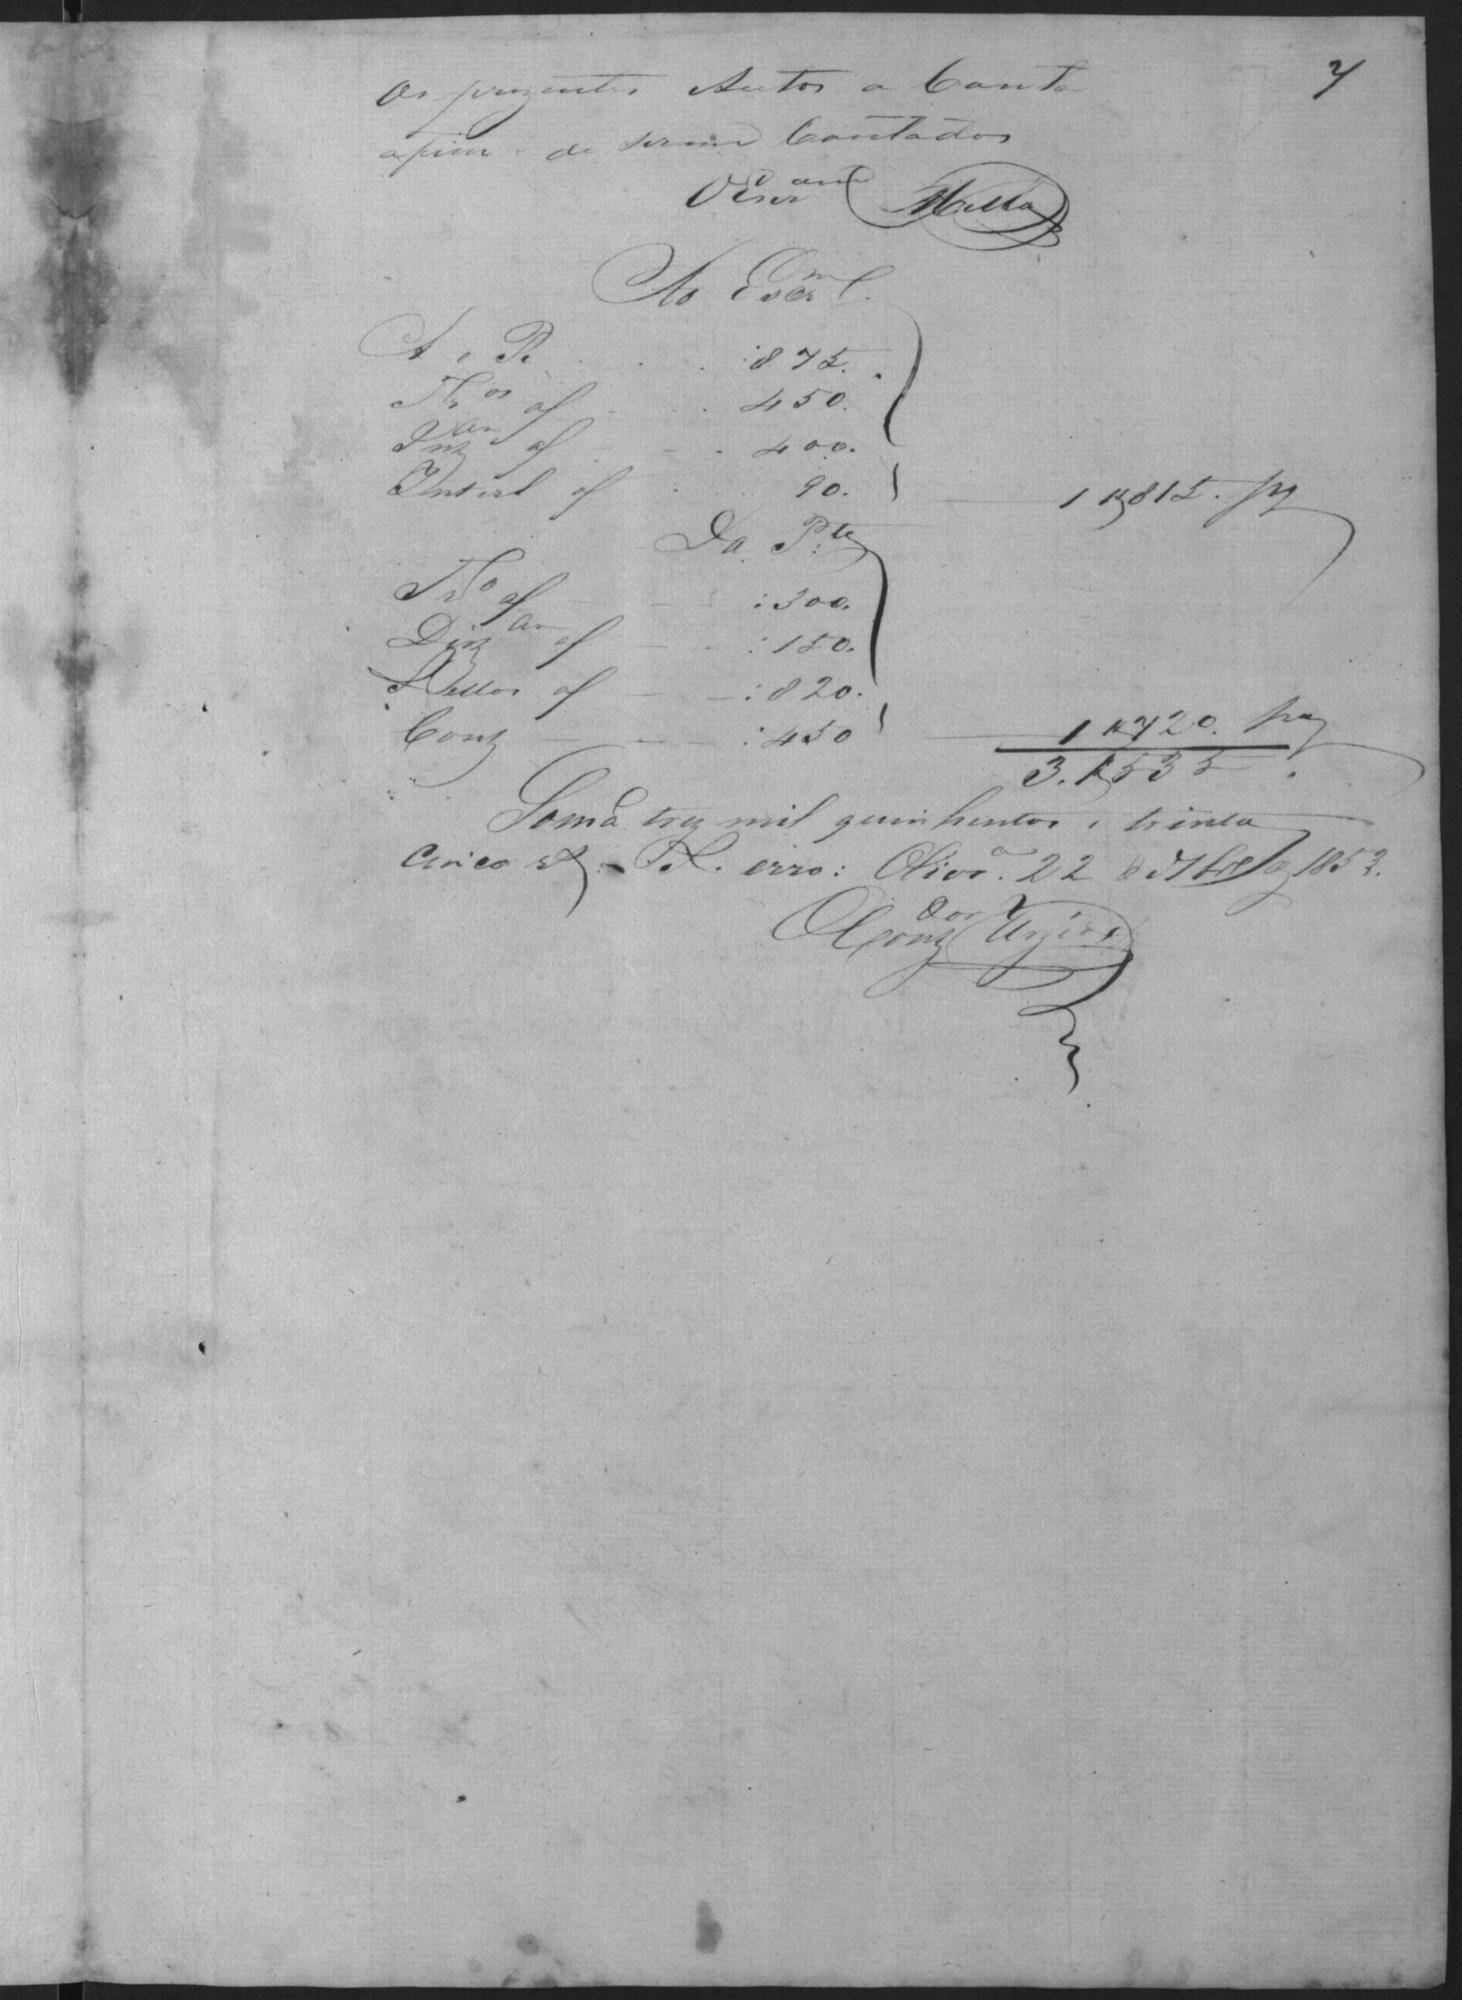 7
Os prezentes Autos a Conta
afim de serem Contados
O Escr.am Mello
Ao Escr.m
A. e R. . . . :875.
Tr.os af . . . 450.
Int.am af . . . 400.
af . . . 90. 1$815. pg
Da P.te
Tr.o af :300.
af :150.
Sellos af :820.
Conta :450 1$720. pg
3.$535
Somã trez mil quinhentos e trinta
cinco rs. S. erro: Olivr.a 22 de 7br.o de 1853.
O Cont.dor